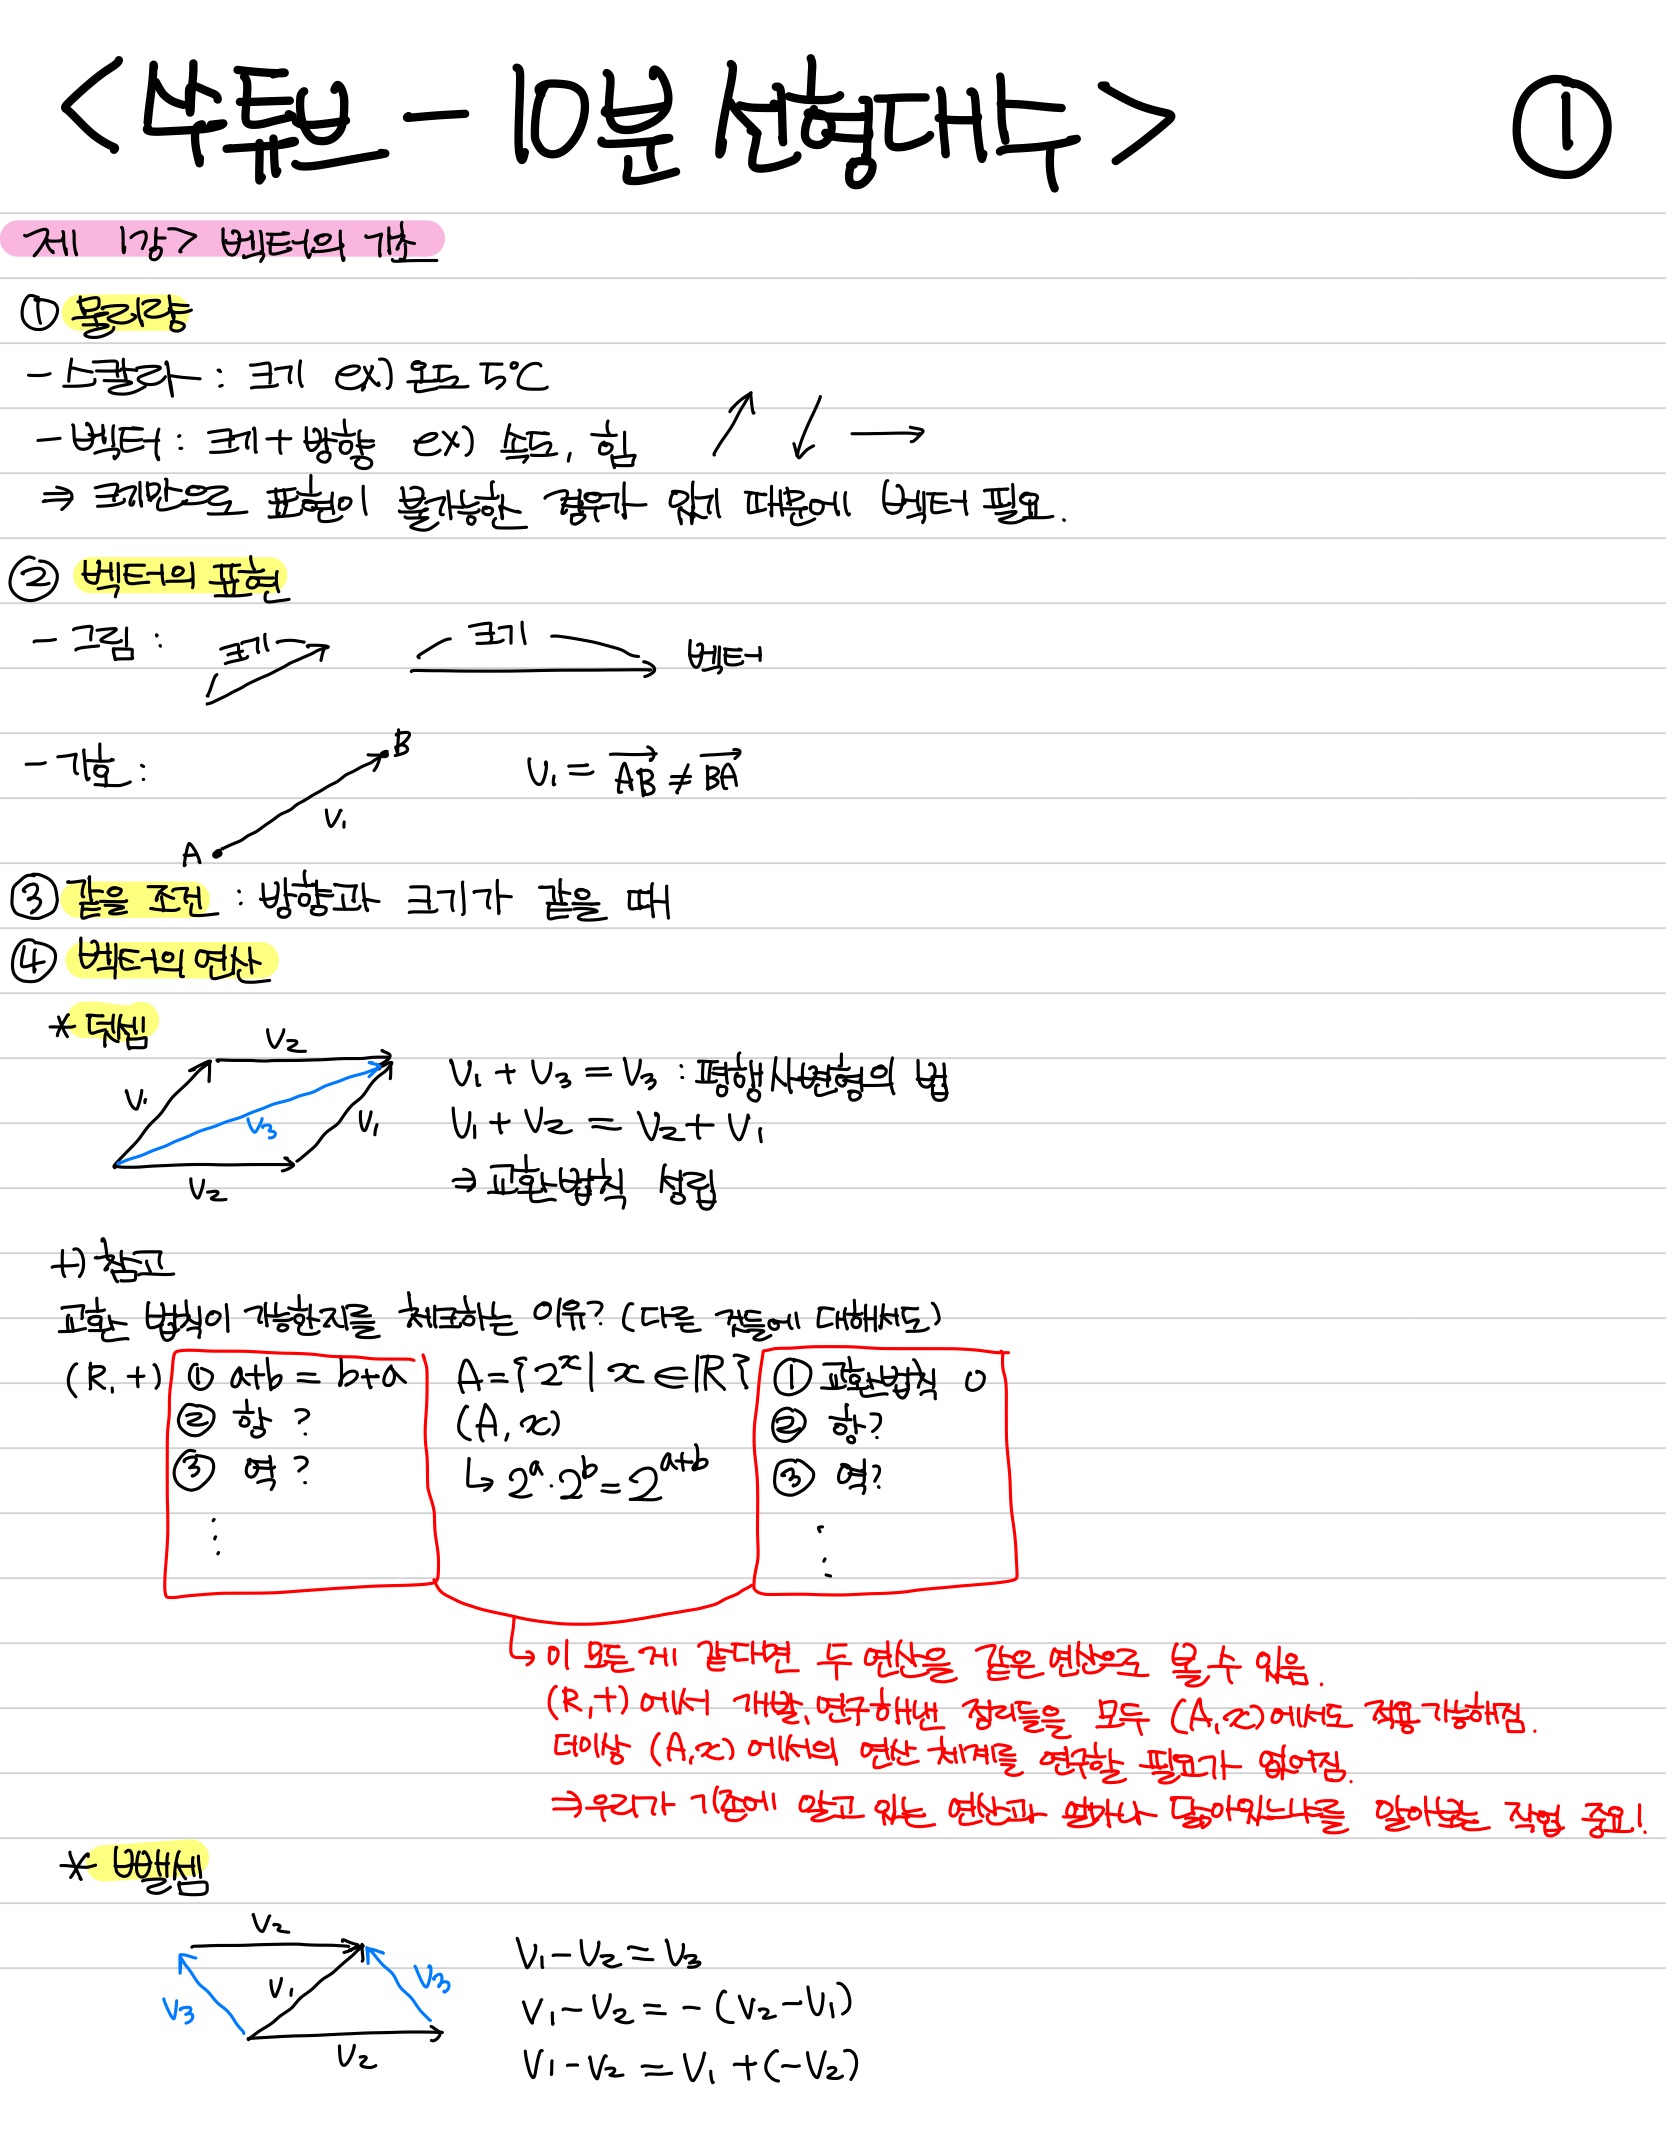 <수튜브 - 10분 선형대수> ①
제 1강> 벡터의 기초
① 물리량
- 스칼라 : 크기 ex) 온도 5℃
- 벡터 : 크기 + 방향 ex) 속도, 힘
⇒ 크기만으로 표현이 불가능한 경우가 있기 때문에 벡터 필요.
② 벡터의 표현
- 그림 : 크기 크기 벡터
- 기호 : A B V₁ V₁ = AB→ ≠ BA→
③ 같을 조건 : 방향과 크기가 같을 때
④ 벡터의 연산
* 덧셈
V₂
V₁ V₃ V₁
V₂
V₁ + V₃ = V₃ : 평행사변형의 법
V₁ + V₂ = V₂ + V₁
⇒ 교환법칙 성립
+) 참고
교환 법칙이 가능한지를 체크하는 이유? (다른 것들에 대해서도)
(R, +) ① a+b = b+a A = {2ˣ | x ∈ ℝ} ① 교환법칙 O
② 항? (A, x) ② 항?
③ 역? ↳ 2ᵃ · 2ᵇ = 2ᵃ⁺ᵇ ③ 역?
⋮ ⋮
↳ 이 모든 게 같다면 두 연산을 같은 연산으로 볼 수 있음.
(R, +) 에서 개발, 연구해낸 정리들을 모두 (A, x) 에서도 적용 가능해짐.
더이상 (A, x) 에서의 연산 체계를 연구할 필요가 없어짐.
⇒ 우리가 기존에 알고 있는 연산과 얼마나 닮아있느냐를 알아보는 작업 중요!
* 뺄셈
V₂
V₃ V₁ V₃
V₂
V₁ - V₂ = V₃
V₁ - V₂ = - (V₂ - V₁)
V₁ - V₂ = V₁ + (-V₂)